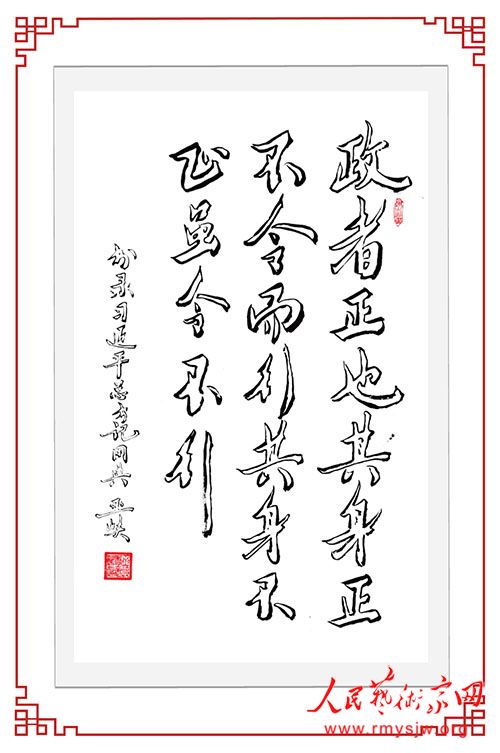 政者正也其身正
不令而行其身不
正虽令不行
录习近平总书记用典
人民藝術家网
www.rmysjw.org